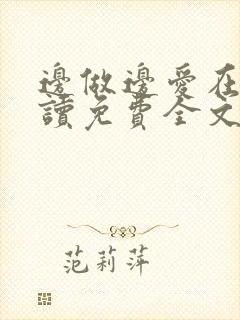 邊做邊愛在
讀免費全文
范莉萍